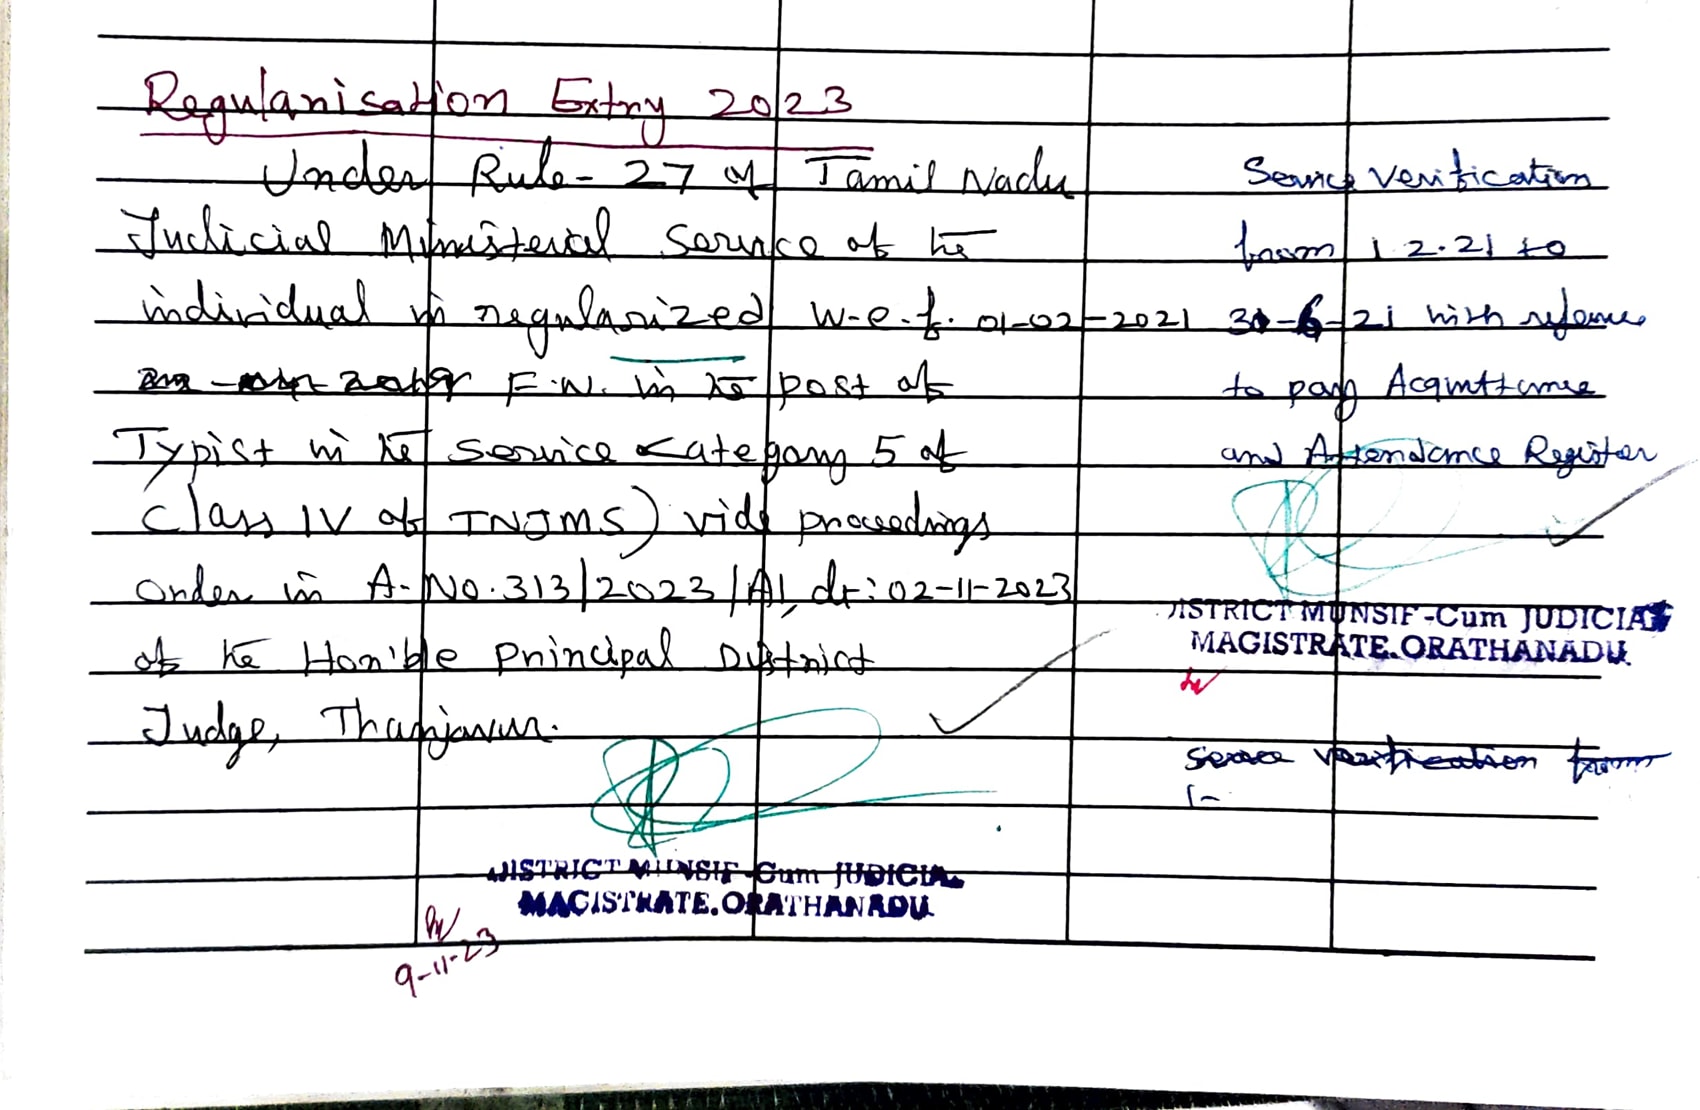 Regularisation Extry 2023
Under Rule - 27 of Tamil Nadu
Judicial Ministerial Service of the
individual in regularized w.e.f. 01-02-2021
F.N. in the post of
Typist in the service category 5 of
Class IV of TNJMS) vide proceedings
Order in A. No. 313/2023/A1, dt: 02-11-2023
of the Hon'ble Principal District
Judge, Thanjavur.
DISTRICT MUNSIF-Cum JUDICIAL
MAGISTRATE. ORATHANADU
9-11-23
Service verification
from 1.2.21 to
30-6-21 with refernce
to pay Acquittance
and Attendance Register
DISTRICT MUNSIF-Cum JUDICIAL
MAGISTRATE. ORATHANADU
verification from